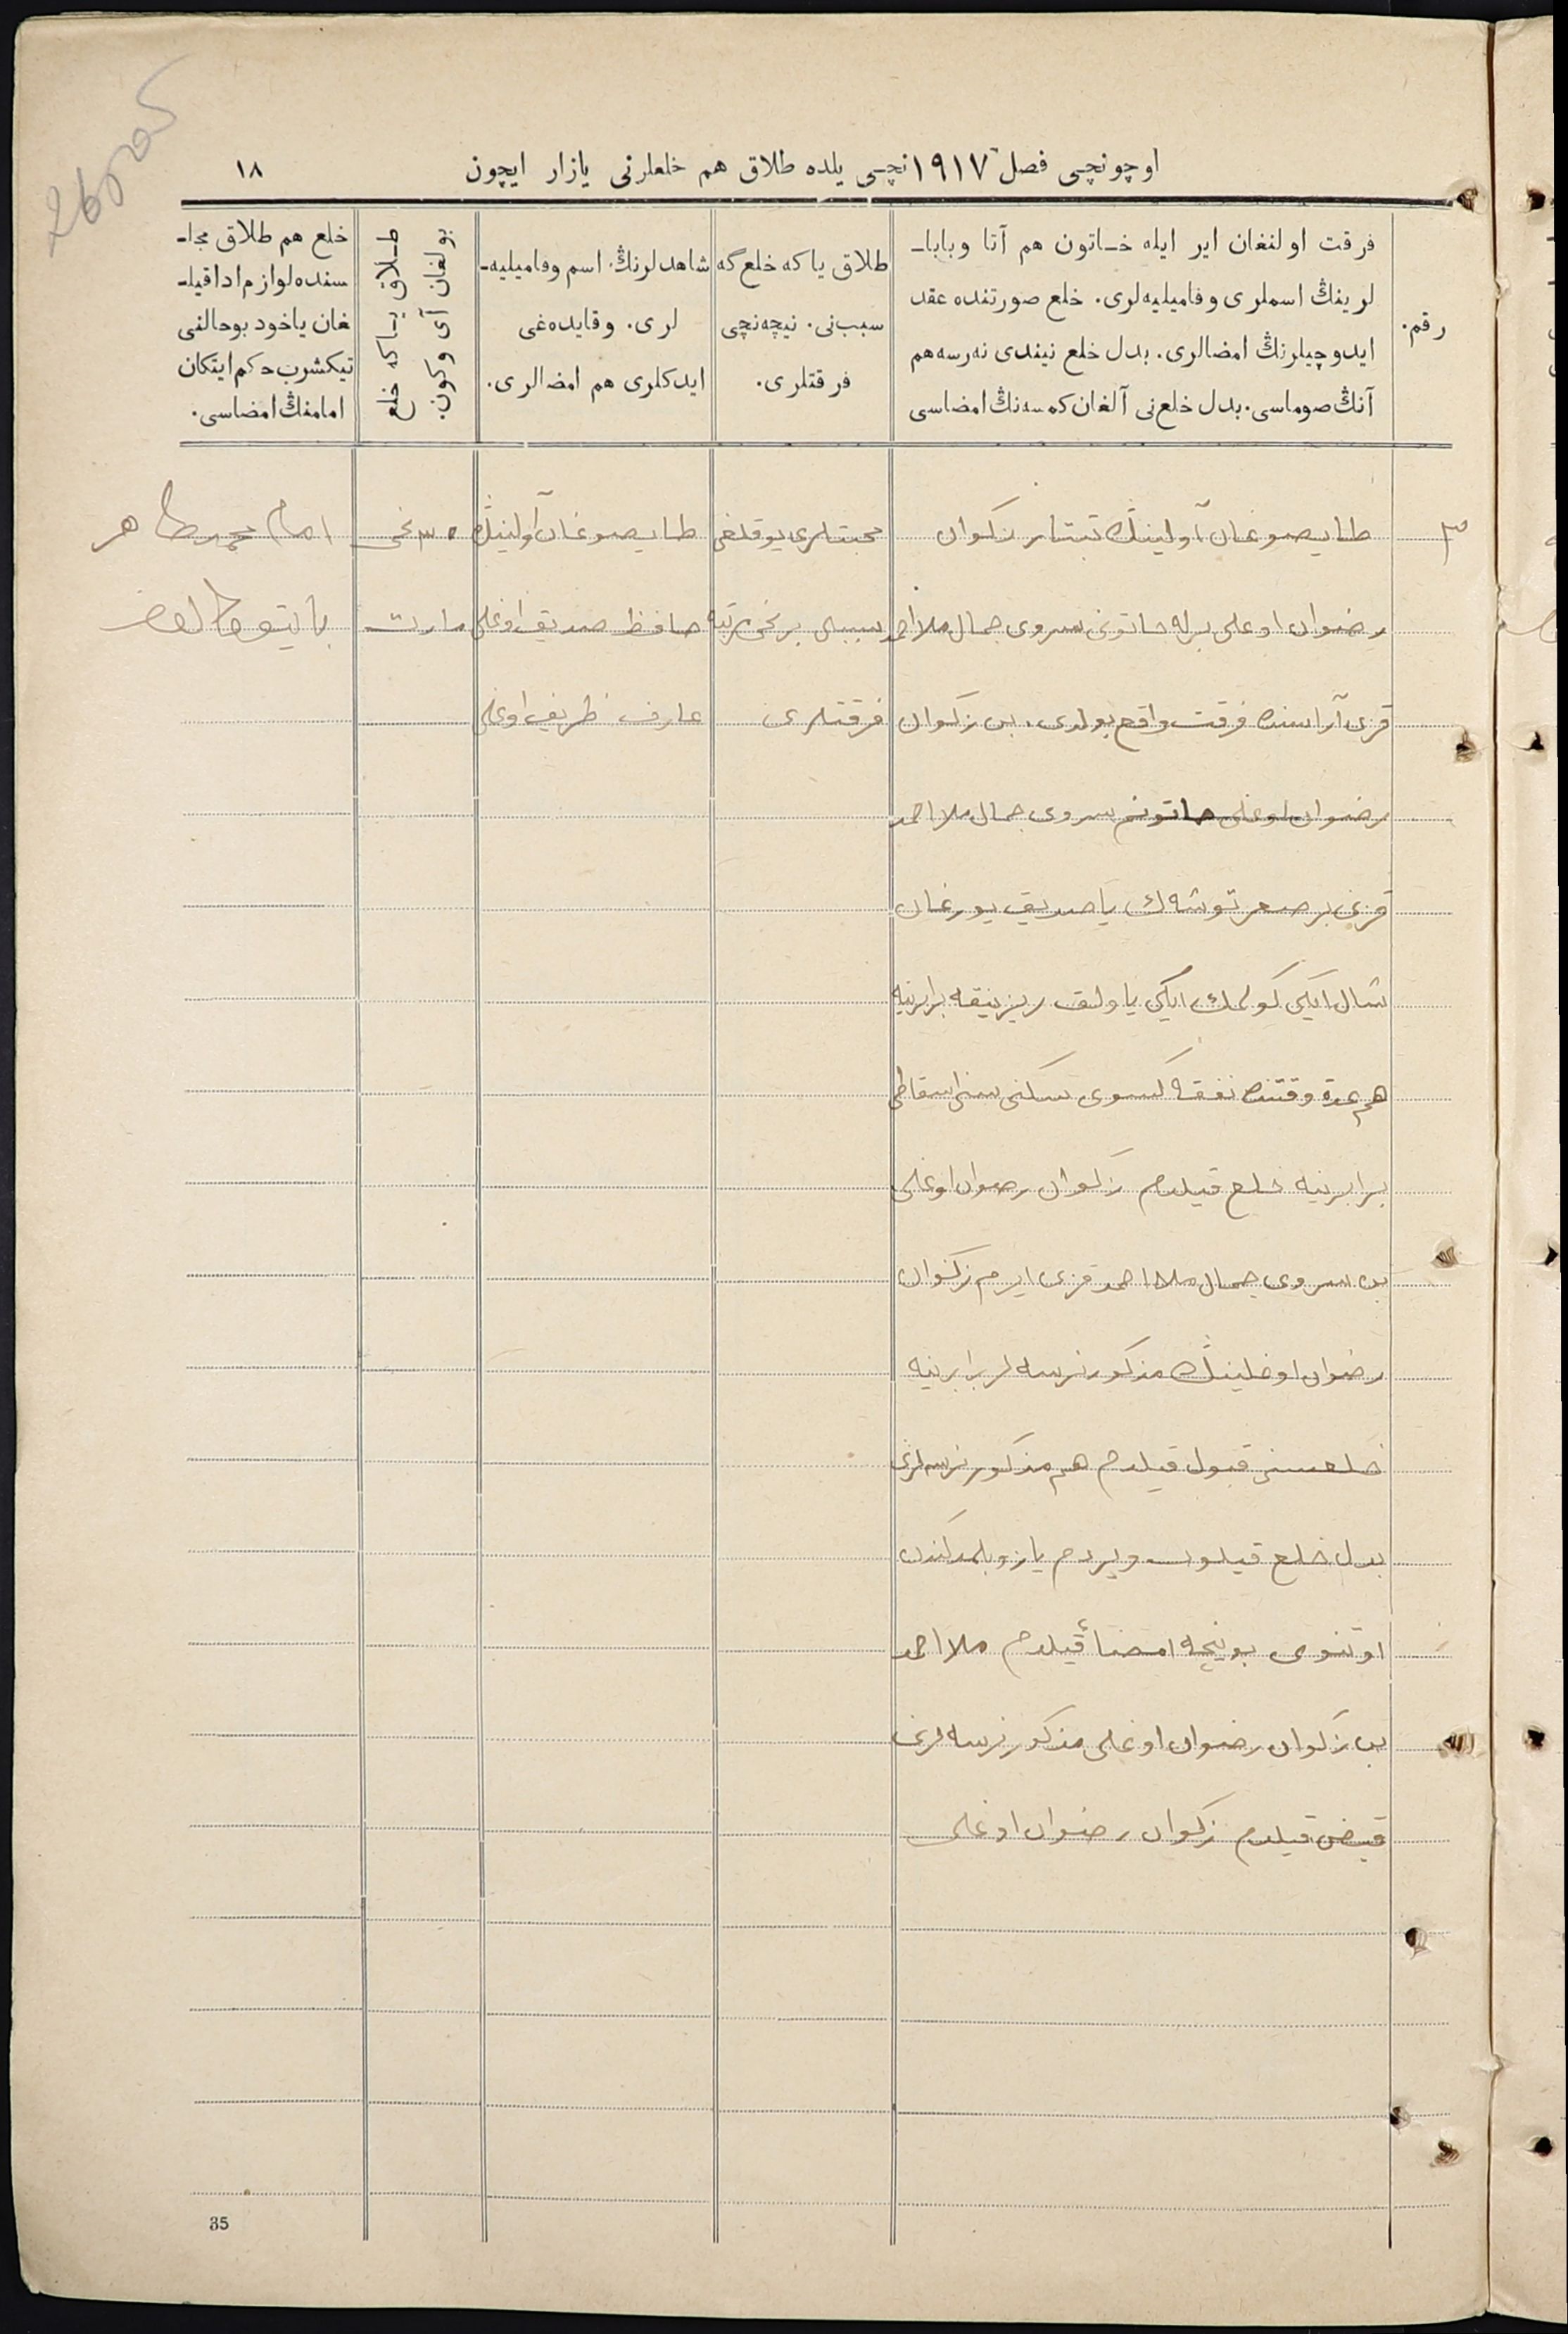 اوچونچی فصل ١٩١٧نچی یلده طلاق هم خلعلرنی یازار ایچون
١٨
رقم.
فرقت اولنغان ایر ایله خاتون هم آتا وبابا-
لرینڭ اسملری وفامیلیه‌لری. خلع صورتنده عقد
ایدوچیلرنڭ امضالری. بدل خلع نیندی نه‌رسه هم
آنڭ صوماسی. بدل خلع‌نی آلغان کمسه‌نڭ امضاسی
طلاق یا که خلع گه
سبب‌نی. نیچه‌نچی
فرقتلری.
شاهدلرنڭ اسم وفامیلیه-
لری. وقایده‌غی
ایدکلری هم امضالری.
طلاق یا که خلع
بولغان آی وکون.
خلع هم طلاق مجا-
سنده لوازم ادا قیلـ
غان یاخود بوحالنی
تیکشرب حکم ایتکان
امامنڭ امضاسی.
٣
طایصوغان آولینڭ تبتار زکوان
رضوان اوغلی برله خاتونی سروی جمال ملا احمد
قزی آراسنده فرقت واقع بولدی. بن زکوان
رضوان اوغلی خاتونم سروی جمال ملا احمد
قزی بر صعر توشه‌ك یاصدیق یورغان
شال ایکی کولمك ایکی یاولق ریزینقه برابرینه
هم عدة وقتنده نفقه کسوی سکنی سنی اسقاطی
برابرینه خلع قیلدم زکوان رضوان اوغلی
بن سروی جمال ملا احمد قزی ایرم زکوان
رضوان اوغلینڭ مذکور نرسه لر برابرینه
خلعسنی قبول قیلدم هم مذکور نرسه‌لرنی
بدل خلع قیلوب ویردم یازو بلمدکندن
اوتنوی بوینچه امضاء قیلدم ملا احمد
بن زکوان رضوان اوغلی مذکور نرسه لرنی
قبض قیلدم زکوان رضوان اوغلی
محبتلری یوقلغی
سببلی برنچی مرتبه
فرقتلری
طایصوغان آولینڭ
حافظ صدیق اوغلی
عارف ظریف اوغلی
٣٠ نچی
مارت
امام محمد طاهر
35